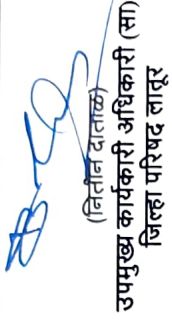 (नितीन दाताळ)
उपमुख्य कार्यकारी अधिकारी (सा)
जिल्हा परिषद लातूर